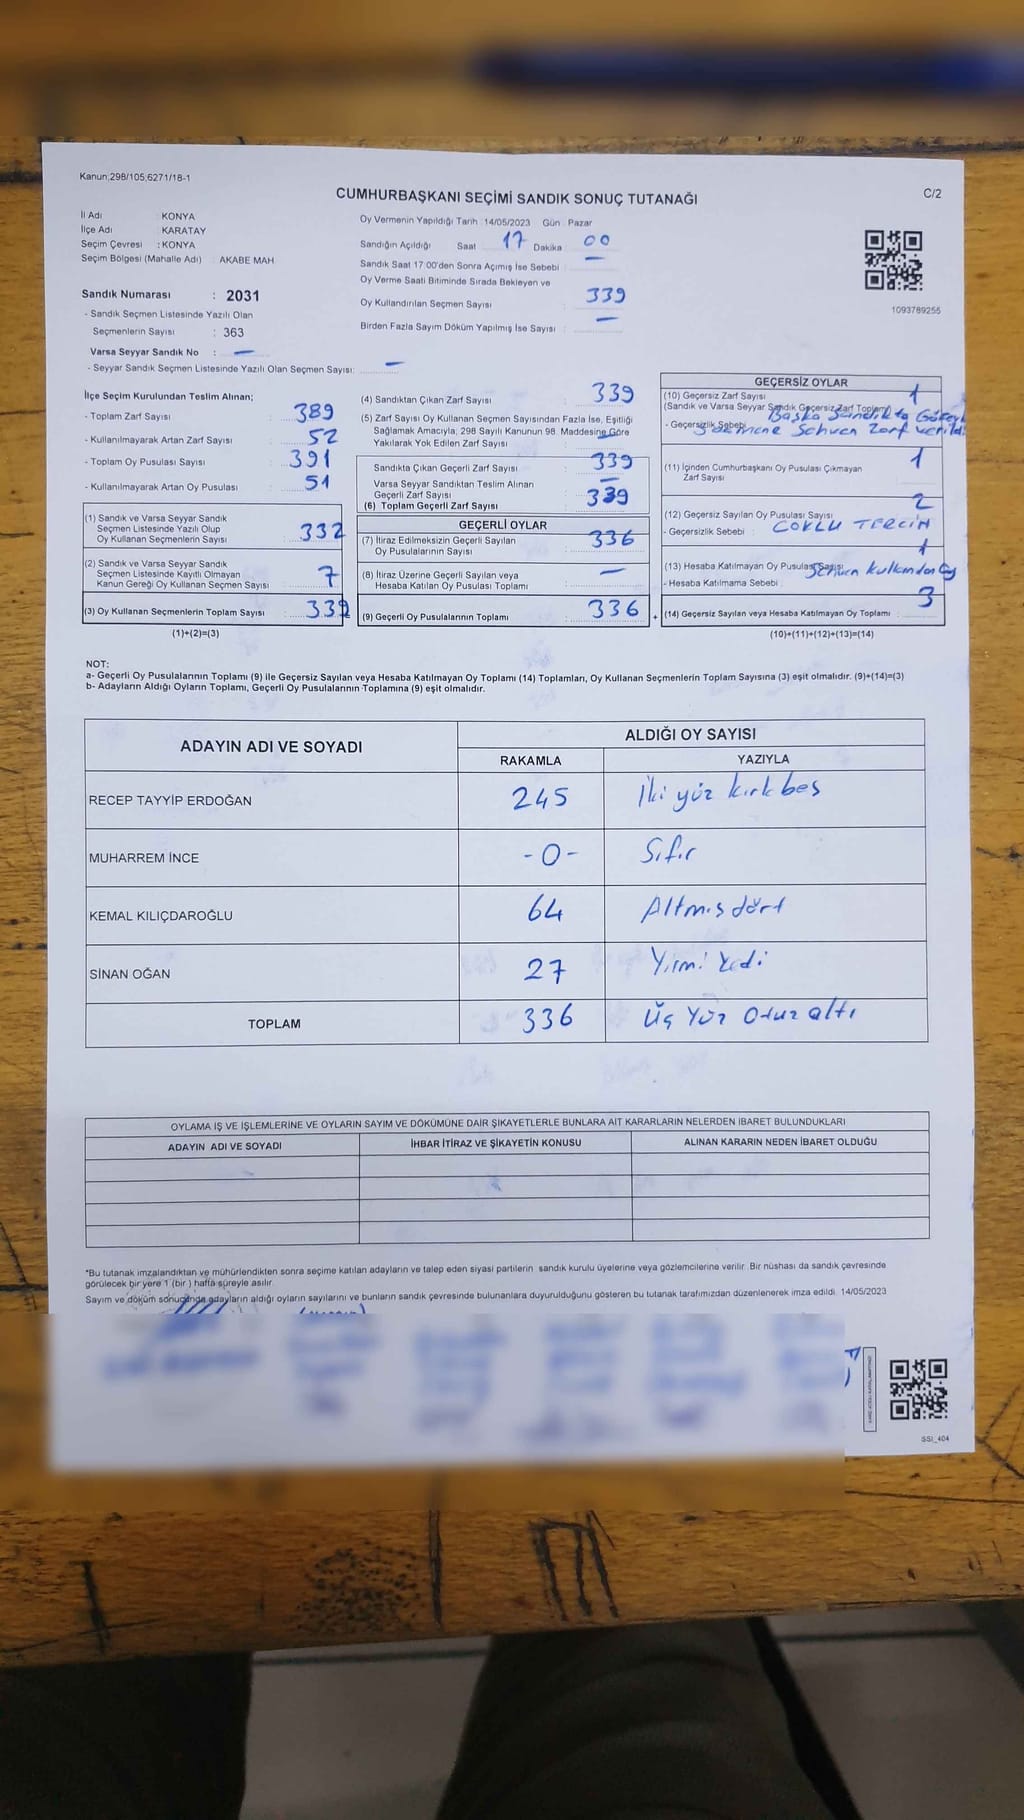 Kanun;298/105,6271/18-1
CUMHURBAŞKANI SEÇİMİ SANDIK SONUÇ TUTANAĞI
C/2
İl Adı : KONYA
İlçe Adı : KARATAY
Seçim Çevresi : KONYA
Seçim Bölgesi (Mahalle Adı) : AKABE MAH
Sandık Numarası : 2031
- Sandık Seçmen Listesinde Yazılı Olan
Seçmenlerin Sayısı : 363
Varsa Seyyar Sandık No : —
- Seyyar Sandık Seçmen Listesinde Yazılı Olan Seçmen Sayısı: —
Oy Vermenin Yapıldığı Tarih : 14/05/2023 Gün : Pazar
Sandığın Açıldığı Saat 17 Dakika 00
Sandık Saat 17:00'den Sonra Açımış İse Sebebi : —
Oy Verme Saati Bitiminde Sırada Bekleyen ve
Oy Kullandırılan Seçmen Sayısı : 339
Birden Fazla Sayım Döküm Yapılmış İse Sayısı : —
1093789255
İlçe Seçim Kurulundan Teslim Alınan;
- Toplam Zarf Sayısı : 389
- Kullanılmayarak Artan Zarf Sayısı : 52
- Toplam Oy Pusulası Sayısı : 391
- Kullanılmayarak Artan Oy Pusulası : 51
(1) Sandık ve Varsa Seyyar Sandık
Seçmen Listesinde Yazılı Olup
Oy Kullanan Seçmenlerin Sayısı : 332
(2) Sandık ve Varsa Seyyar Sandık
Seçmen Listesinde Kayıtlı Olmayan
Kanun Gereği Oy Kullanan Seçmen Sayısı : 7
(3) Oy Kullanan Seçmenlerin Toplam Sayısı : 339
(1)+(2)=(3)
(4) Sandıktan Çıkan Zarf Sayısı : 339
(5) Zarf Sayısı Oy Kullanan Seçmen Sayısından Fazla İse, Eşitliği
Sağlamak Amacıyla; 298 Sayılı Kanunun 98. Maddesine Göre
Yakılarak Yok Edilen Zarf Sayısı : —
Sandıkta Çıkan Geçerli Zarf Sayısı : 339
Varsa Seyyar Sandıktan Teslim Alınan
Geçerli Zarf Sayısı : —
(6) Toplam Geçerli Zarf Sayısı : 339
GEÇERLİ OYLAR
(7) İtiraz Edilmeksizin Geçerli Sayılan
Oy Pusulalarının Sayısı : 336
(8) İtiraz Üzerine Geçerli Sayılan veya
Hesaba Katılan Oy Pusulası Toplamı : —
(9) Geçerli Oy Pusulalarının Toplamı : 336
+
GEÇERSİZ OYLAR
(10) Geçersiz Zarf Sayısı 1
(Sandık ve Varsa Seyyar Sandık Geçersiz Zarf Toplamı)
- Geçersizlik Sebebi : Başka Sandıkta
Sehven Zarf verildi
(11) İçinden Cumhurbaşkanı Oy Pusulası Çıkmayan
Zarf Sayısı : 1
(12) Geçersiz Sayılan Oy Pusulası Sayısı : 2
- Geçersizlik Sebebi : ÇOKLU TERCİH
(13) Hesaba Katılmayan Oy Pusulası Sayısı : 1
- Hesaba Katılmama Sebebi : Sehven kullanılan oy
(14) Geçersiz Sayılan veya Hesaba Katılmayan Oy Toplamı : 3
(10)+(11)+(12)+(13)=(14)
NOT:
a- Geçerli Oy Pusulalarının Toplamı (9) ile Geçersiz Sayılan veya Hesaba Katılmayan Oy Toplamı (14) Toplamları, Oy Kullanan Seçmenlerin Toplam Sayısına (3) eşit olmalıdır. (9)+(14)=(3)
b- Adayların Aldığı Oyların Toplamı, Geçerli Oy Pusulalarının Toplamına (9) eşit olmalıdır.
ADAYIN ADI VE SOYADI
ALDIĞI OY SAYISI
RAKAMLA YAZIYLA
RECEP TAYYİP ERDOĞAN 245 İki yüz kırk beş
MUHARREM İNCE -0- Sıfır
KEMAL KILIÇDAROĞLU 64 Altmış dört
SİNAN OĞAN 27 Yirmi Yedi
TOPLAM 336 Üç Yüz Otuz altı
OYLAMA İŞ VE İŞLEMLERİNE VE OYLARIN SAYIM VE DÖKÜMÜNE DAİR ŞİKAYETLERLE BUNLARA AİT KARARLARIN NELERDEN İBARET BULUNDUKLARI
ADAYIN ADI VE SOYADI İHBAR İTİRAZ VE ŞİKAYETİN KONUSU ALINAN KARARIN NEDEN İBARET OLDUĞU
*Bu tutanak imzalandıktan ve mühürlendikten sonra seçime katılan adayların ve talep eden siyasi partilerin sandık kurulu üyelerine veya gözlemcilerine verilir. Bir nüshası da sandık çevresinde
görülecek bir yere 1 (bir ) hafta süreyle asılır.
Sayım ve döküm sonucunda adayların aldığı oyların sayılarını ve bunların sandık çevresinde bulunanlara duyurulduğunu gösteren bu tutanak tarafımızdan düzenlenerek imza edildi. 14/05/2023
SSI_404